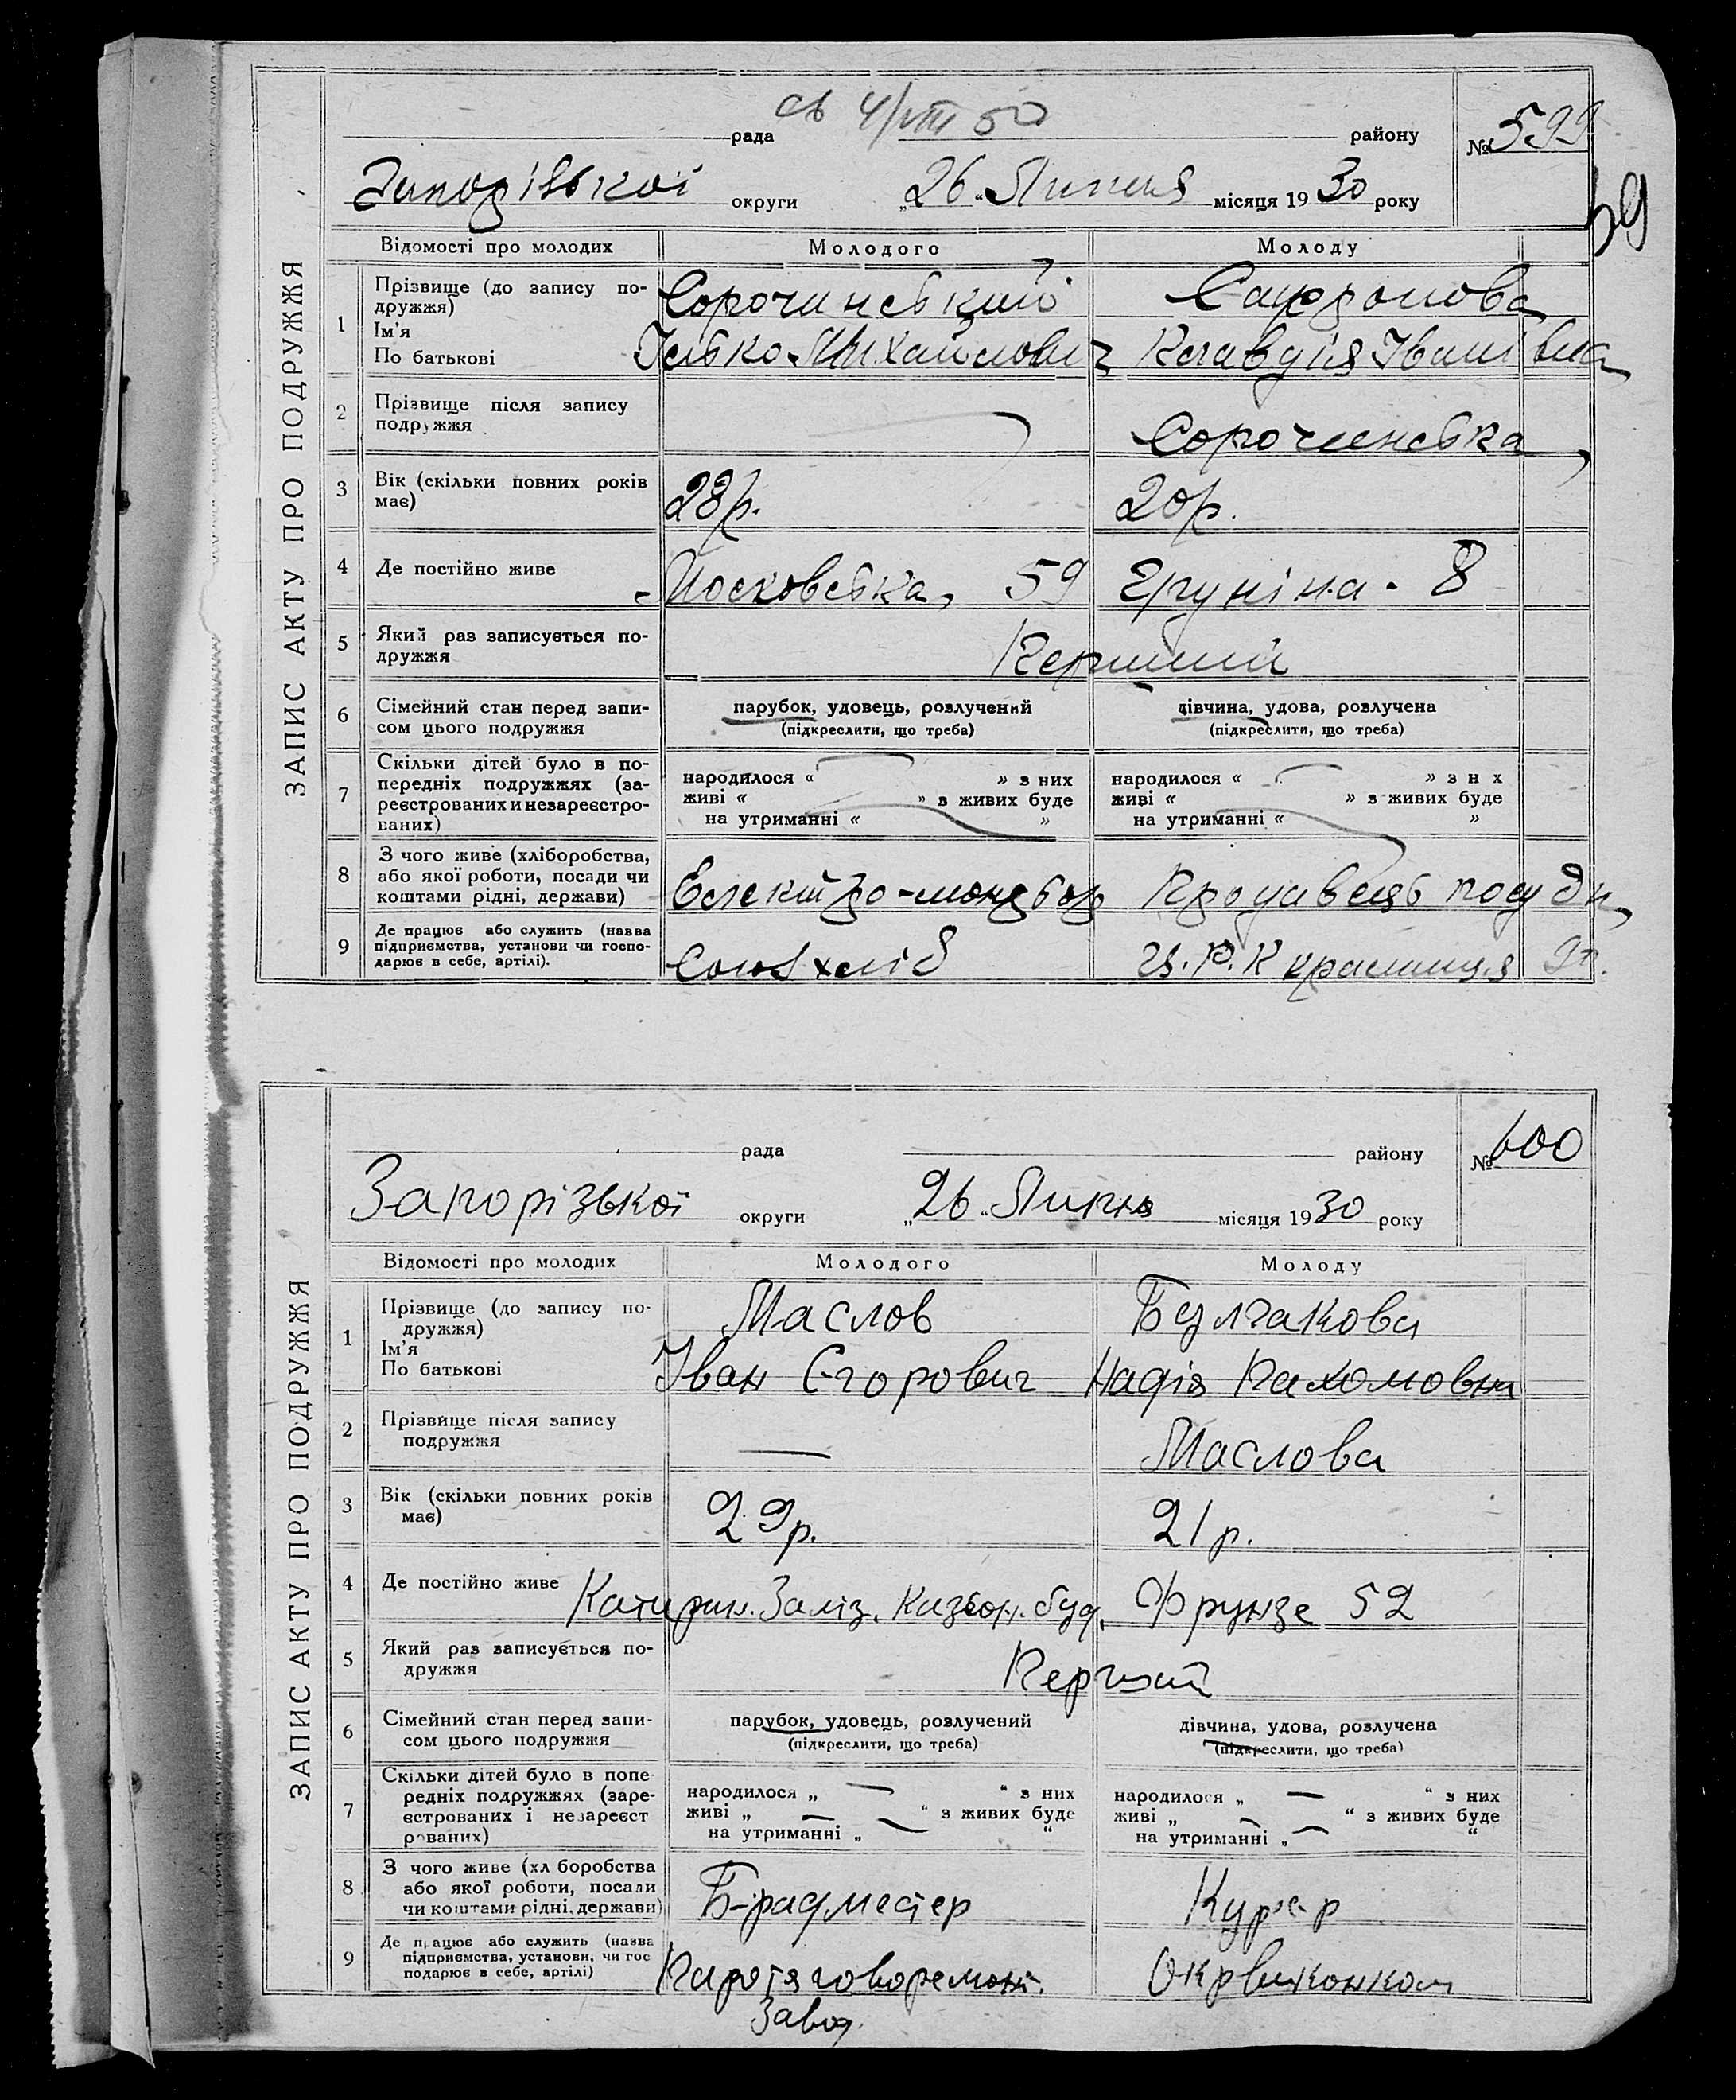 св 4/VIII 50
рада району № 599
Запорізької округи „26“ Липня місяця 1930 року
59
ЗАПИС АКТУ ПРО ПОДРУЖЖЯ
Відомості про молодих Молодого Молоду
1 Прізвище (до запису по-
дружжя)
Ім'я
По батькові
Сорочинський
Михайлович
Клавдія Іванівна
2 Прізвище після запису
подружжя
Сорочинська
3 Вік (скільки повних років
має)
28р. 20р.
4 Де постійно живе Московська, 59 8
5 Який раз записується по-
дружжя
Перший
6 Сімейний стан перед запи-
сом цього подружжя
парубок, удовець, розлучений
(підкреслити, що треба)
дівчина, удова, розлучена
(підкреслити, що треба)
7 Скільки дітей було в по-
передніх подружжях (за-
реєстрованих и незареєстро-
ваних)
народилося « » з них
живі « » з живих буде
на утриманні « »
народилося « » з н х
живі « » з живих буде
на утриманні « »
8 З чого живе (хліборобства,
або якої роботи, посади чи
коштами рідні, держави)
Електро-монтьор
Продавець посуди
9 Де працює або служить (назва
підприємства, установи чи госпо-
дарює в себе, артілі).
Союзхліб
Ц.Р.К крамниця
рада району № 600
Запорізької округи „26“ Липня місяця 1930 року
ЗАПИС АКТУ ПРО ПОДРУЖЖЯ
Відомості про молодих Молодого Молоду
1 Прізвище (до запису по-
дружжя)
Ім'я
По батькові
Маслов
Іван Єгорович
Булгакова
Надія Пахомовна
2 Прізвище після запису
подружжя
— Маслова
3 Вік (скільки повних років
має)
29р. 21р.
4 Де постійно живе Катерин. Заліз. Казьон. буд. Фрунзе 52
5 Який раз записується по-
дружжя
Перший
6 Сімейний стан перед запи-
сом цього подружжя
парубок, удовець, розлучений
(підкреслити, що треба)
дівчина, удова, розлучена
(підкреслити, що треба)
7 Скільки дітей було в попе-
редніх подружжях (заре-
єстрованих і незареєст
рованих)
народилося „ — “ з них
живі „ — “ з живих буде
на утриманні „ — “
народилося „ — “ з них
живі „ — “ з живих буде
на утриманні „ — “
8 З чого живе (хл боробства
або якої роботи, посади
чи коштами рідні, держави)
Брадместер
Кур'єр
9 Де працює або служить (назва
підприємства, установи, чи гос
подарює в себе, артілі)
Паротяговоремонт.
Завод.
Окрвиконком